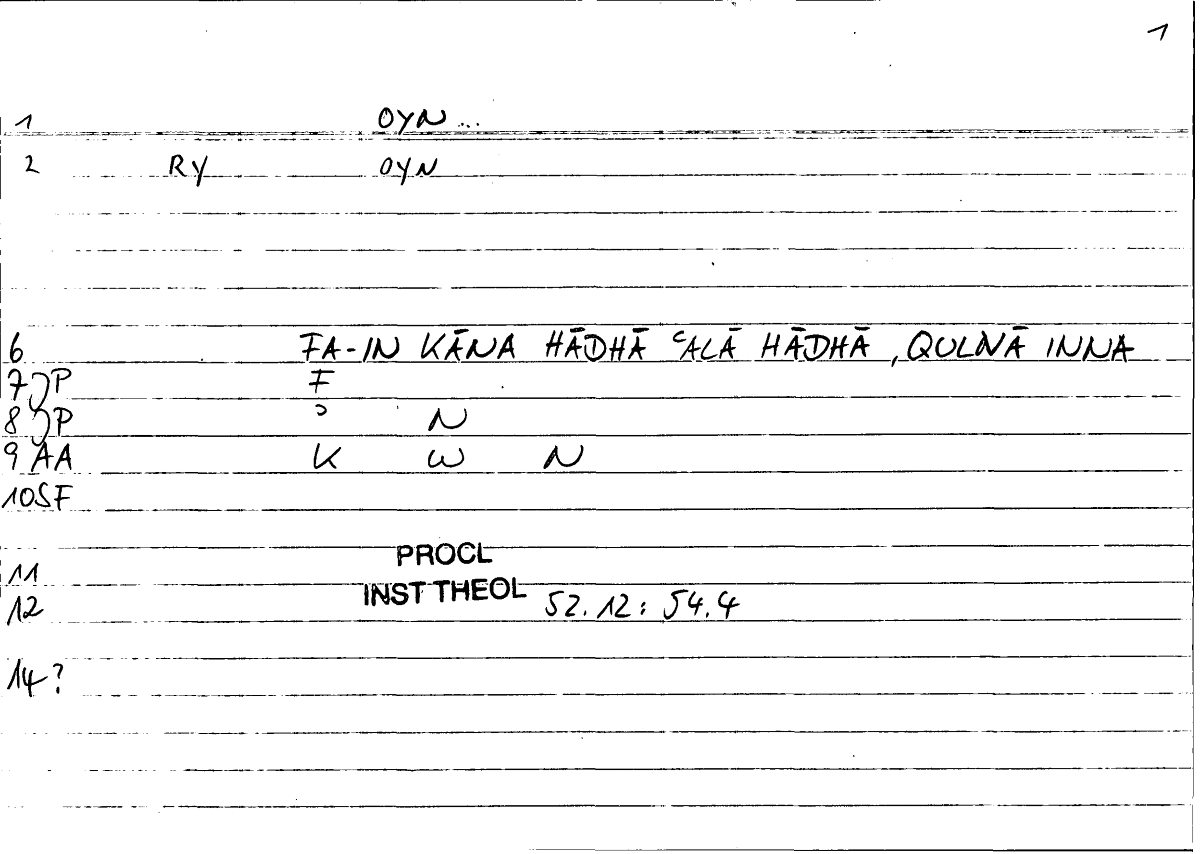 1
1 OYN ...
2 RY OYN
6 FA-IN KĀNA HĀDHĀ ʿALĀ HĀDHĀ, QULNĀ INNA
7 JP F
8 JP ʾ N
9 AA K W N
10 SF
11 PROCL
12 INST THEOL 52.12: 54.4
14?